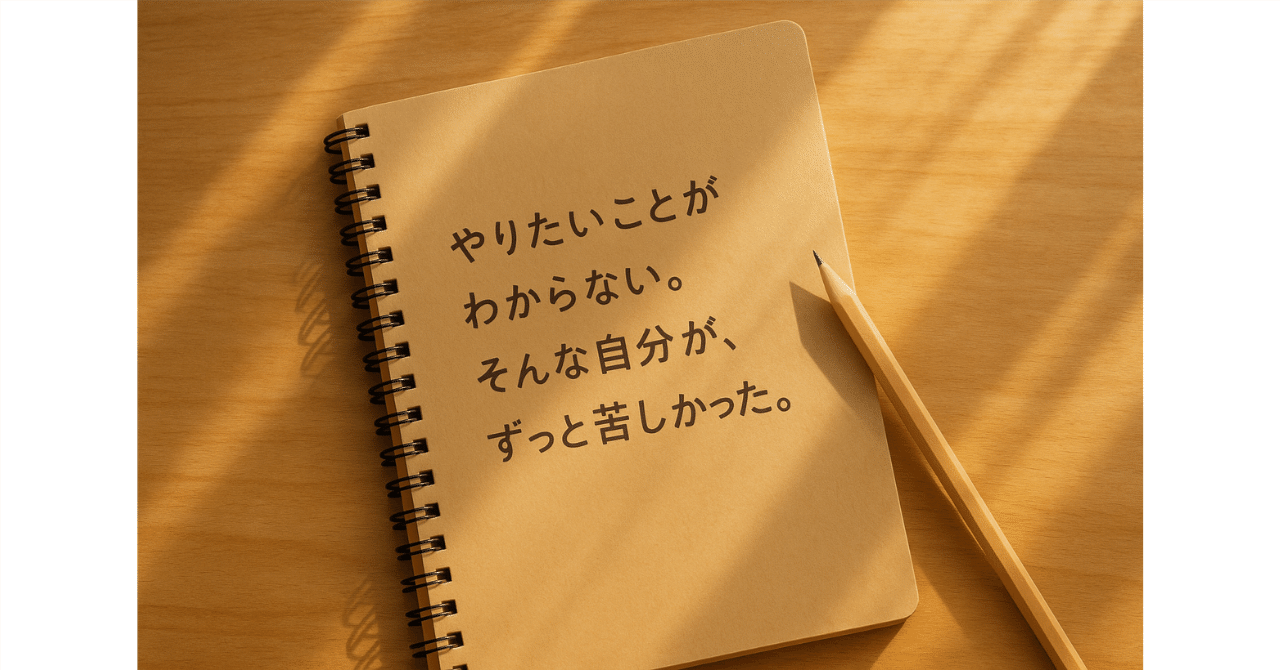 やりたいことが
わからない。
そんな自分が、
ずっと苦しかった。